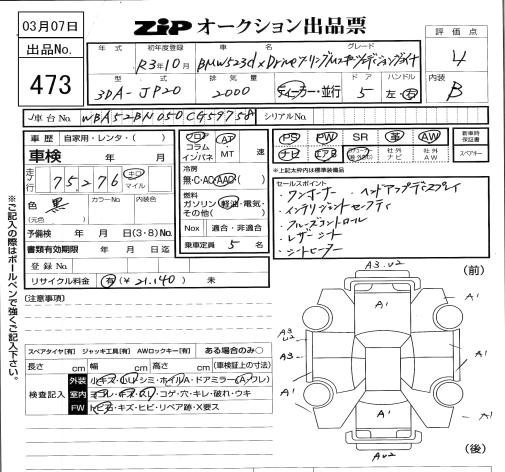 03月07日
ZIP オークション出品票
出品No.
473
評価点
4
内装
B
年式 初年度登録 車名 グレード
R3年10月 BMW523d xDrive
型式 排気量 ドア ハンドル
3DA-JP20 2000 ディーラー・並行 5 左・右
車台No. WBA52BN050CG59758 シリアルNo.
車歴 自家用・レンタ・( )
車検 年 月
走行 75,276 キロ マイル
色 黒 カラーNo. 内装色
(元色)
予備検 年 月 日(3・8)No.
書類有効期限 年 月 日迄
登録No.
リサイクル料金 有(¥21,140) 未
フロア コラム インパネ AT・MT 速
冷房
無・C・AC・AAC
燃料
ガソリン・軽油・電気・
その他( )
Nox 適合・非適合
乗車定員 5 名
PS PW SR 革 AW
ナビ エアB 社外ナビ 社外AW
新車時保証書
スペアキー
*上記太枠内は標準装備品
セールスポイント
・ワンオーナー ・ヘッドアップディスプレイ
・インテリジェントセーフティ
・クルーズコントロール
・レザーシート
・シートヒーター
(注意事項)
スペアタイヤ[有] ジャッキ工具[有] AWロックキー[有] ある場合のみ○
長さ cm 幅 cm 高さ cm (車検証上の寸法)
検査記入
外装 小キズ・小U・シミ・ホイルA・ドアミラー(A・ワレ)
室内 ヨゴレ・キズ・スレ・コゲ・穴・キレ・破れ・ウキ
FW トビ石・キズ・ヒビ・リペア跡・X要ス
ご記入の際はボールペンで強くご記入下さい。
(前)
A3.U2
A1
A1
A1
A3
U2
A3
A1
A1
A1
A1
AU2
(後)